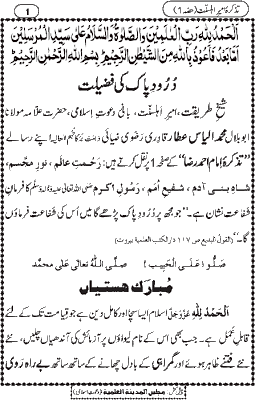 تذکرۂ امیرِ اہلسنّت (حصہ 6)
1
اَلْحَمْدُ لِلّٰهِ رَبِّ الْعٰلَمِیْنَ وَالصَّلٰوةُ وَالسَّلَامُ عَلٰی سَیِّدِ الْمُرْسَلِیْنَ
اَمَّا بَعْدُ فَاَعُوْذُ بِاللّٰهِ مِنَ الشَّیْطٰنِ الرَّجِیْمِ بِسْمِ اللّٰهِ الرَّحْمٰنِ الرَّحِیْمِ
دُرُودِ پاک کی فضیلت
شیخِ طریقت، امیرِ اہلسنّت، بانیِ دعوتِ اسلامی، حضرت علّامہ مولانا
ابو بلال محمد الیاس عطار قادری رضوی ضیائی دامت برکاتہم العالیہ اپنے رسالے
”تذکرۂ امام احمد رضا“ کے صفحہ 1 پر نقل کرتے ہیں: رحمتِ عالم، نورِ مجسم،
شاہِ بنی آدم، شفیعِ اُمم، رسولِ اکرم صلی اللہ تعالیٰ علیہ واٰلہ وسلم کا فرمانِ
شفاعت نشان ہے۔ ”جو مجھ پر دُرُودِ پاک پڑھے گا میں اُس کی شفاعت فرماؤں
گا“ (القول البدیع ص ۱۱۷ دار الکتب العلمیۃ بیروت)
صَلُّوْا عَلَی الْحَبِیْب! صلَّی اللّٰهُ تعالٰی علٰی محمَّد
مُبارَک ہستیاں
اَلْحَمْدُ لِلّٰهِ عَزَّوَجَلَّ اسلام ایسا سچا اور کامل دین ہے جو قیامت تک کے لئے
قابلِ عمل ہے۔ جب بھی اس کے نام لیواؤں پر آزمائش کی آندھیاں چلیں، نئے
نئے فتنے ظاہر ہوئے اور گمراہی کے بادل چھانے کے ساتھ ساتھ بے راہ روی
مجلس المدینة العلمیة (دعوتِ اسلامی)